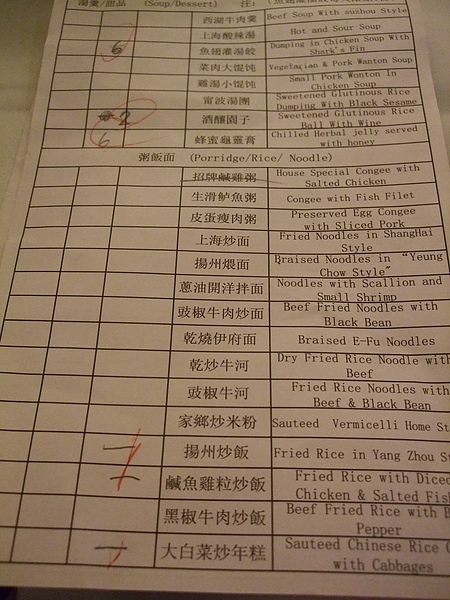 湯羹/甜品 (Soup/Dessert) 注:
西湖牛肉羹 Beef Soup With suzhou Style
上海酸辣湯 Hot and Sour Soup
6 魚翅灌湯餃 Dumping in Chicken Soup With Shark's Fin
菜肉大馄饨 Vegetarian & Pork Wanton Soup
雞湯小馄饨 Small Pork Wonton In Chicken Soup
雷波湯團 Sweetened Glutinous Rice Dumping With Black Sesame
2 酒釀園子 Sweetened Glutinous Rice Ball With Wine
6 蜂蜜龜靈膏 Chilled Herbal jelly served with honey
粥飯面 (Porridge/Rice/ Noodle)
招牌鹹雞粥 House Special Congee with Salted Chicken
生滑鲈魚粥 Congee with Fish Filet
皮蛋瘦肉粥 Preserved Egg Congee with Sliced Pork
上海炒面 Fried Noodles in ShangHai Style
揚州煨面 Braised Noodles in "Yeung Chow Style"
蔥油開洋拌面 Noodles with Scallion and Small Shrimp
豉椒牛肉炒面 Beef Fried Noodles with Black Bean
乾燒伊府面 Braised E-Fu Noodles
乾炒牛河 Dry Fried Rice Noodle with Beef
豉椒牛河 Fried Rice Noodles with Beef & Black Bean
家鄉炒米粉 Sauteed Vermicelli Home
一 揚州炒飯 Fried Rice in Yang Zhou
一 鹹魚雞粒炒飯 Fried Rice with Diced Chicken & Salted
黑椒牛肉炒飯 Beef Fried Rice with Pepper
一 大白菜炒年糕 Sauteed Chinese Rice with Cabbages